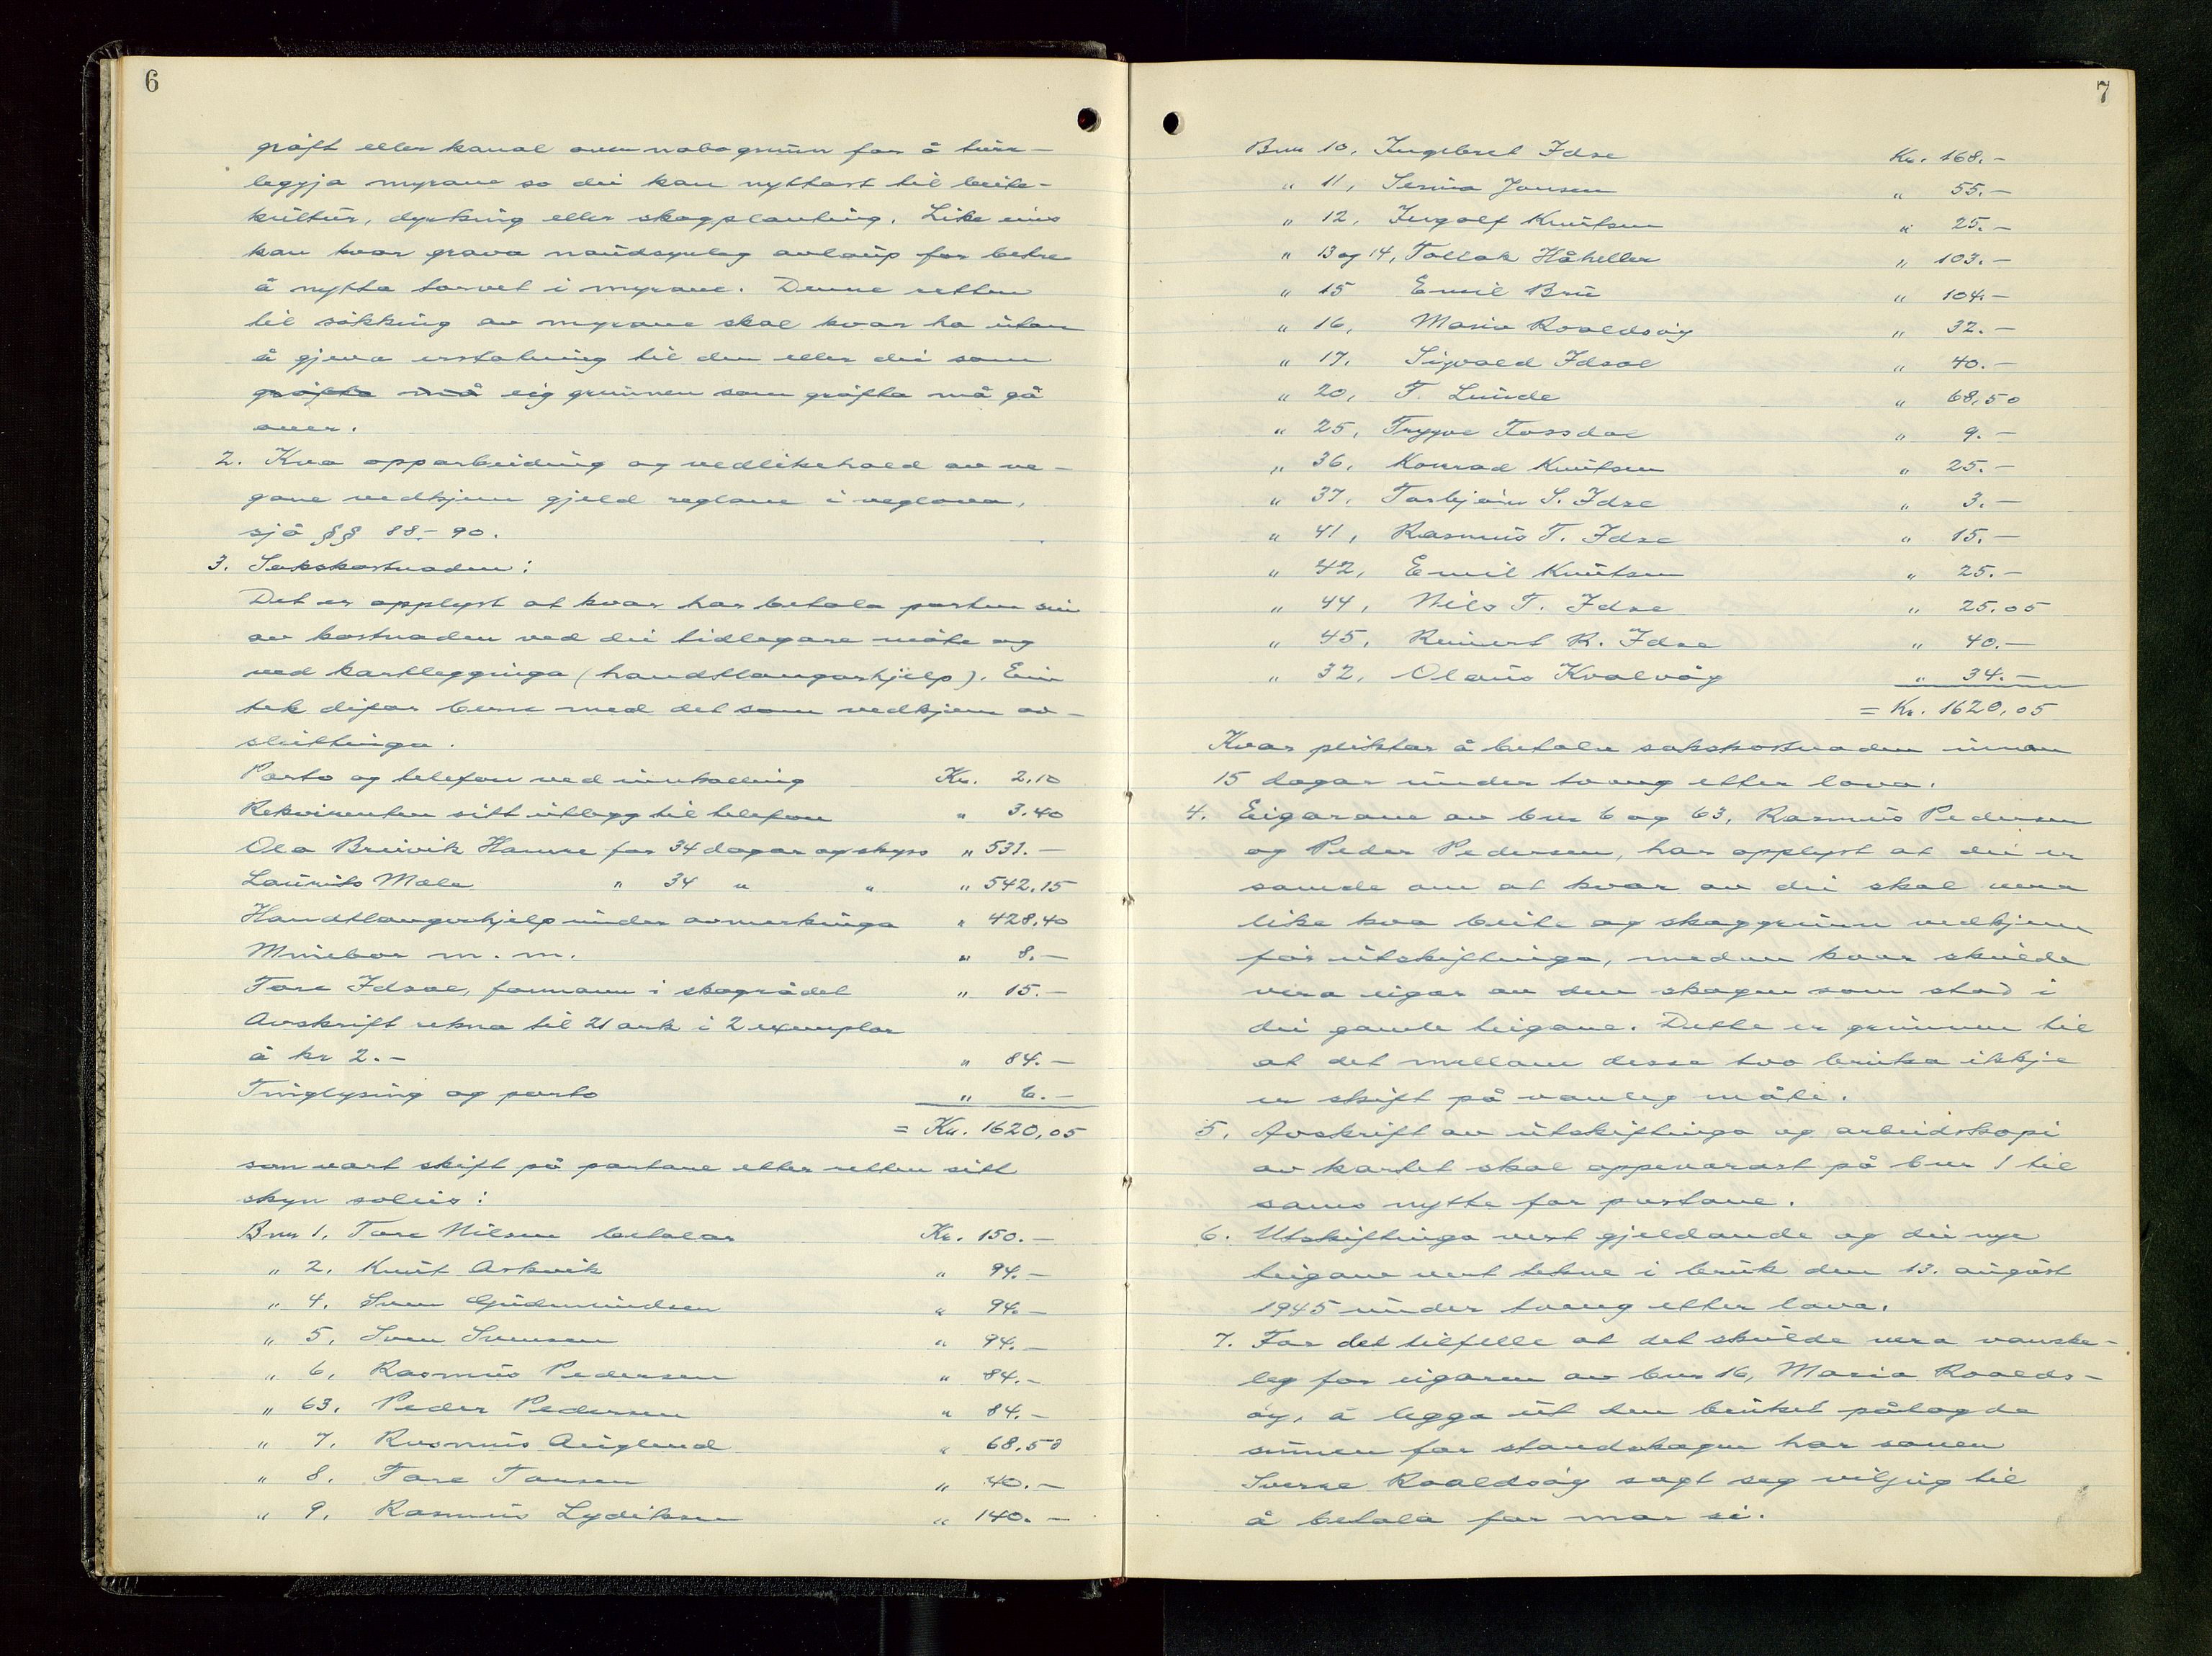 6
gröft eller kanal over nabogrunn for å turr-
leggja myrane so dei kan nyttast til beite-
kultur, dyrking eller skogplanting. Like eins
kan kvar grava naudsynleg avlaup for betre
å nytta torvet i myrane. Denne retten
til søkking av myrane skal kvar ha utan
å gjeva erstatning til den eller dei som
gröfta må eig grunnen som gröfta må gå
over.
2. Kva opparbeiding og vedlikehald av ve-
gane vedkjem gjeld reglane i veglova,
sjå §§ 88-90.
3. Sakskostnaden:
Det er opplyst at kvar har betala parten sin
av kostnaden ved dei tidlegare møte og
ved kartlegginga (handtlangarhjelp). Ein
tek difor berre med det som vedkjem av-
sluttinga.
Porto og telefon ved innkalling Kr. 2.10
Rekvirenten sitt utlegg til telefon " 3.40
Ola Breivik Hamre for 34 dagar og skyss " 531.-
Laurits Mæle " 34 " " " 542.15
Handtlangerhjelp under avmerkinga " 428.40
Minebor m. m. " 8.-
Tore Idsal, formann i skogrådet " 15.-
Avskrift rekna til 21 ark i 2 exemplar
å kr 2.- " 84.-
Tinglysing og porto " 6.-
= Kr. 1620,05
som vart skift på partane etter retten sitt
skyn soleis:
Bnr 1. Tore Nilsen betalar Kr. 150.-
" 2. Knut Askvik " 94.-
" 4. Sven Gudmundsen " 94.-
" 5. Sven Svensen " 94.-
" 6. Rasmus Pedersen " 84.-
" 63. Peder Pedersen " 84.-
" 7. Rasmus Auglend " 68.50
" 8. Tore Torsen " 40.-
" 9. Rasmus Lydiksen " 140.-
7
Bnr 10, Ingebret Idse Kr. 168.-
" 11, Serina Jonsen " 55.-
" 12, Ingolf Knutsen " 25.-
" 13 og 14, Tollak Håheller " 103.-
" 15 Emil Bru " 104.-
" 16, Maria Roaldsøy " 32.-
" 17. Sigvald Idsal " 40.-
" 20, T. Lunde " 68,50
" 25, Trygve Fossdal " 9.-
" 36. Konrad Knutsen " 25.-
" 37, Torbjörn S. Idse " 3.-
" 41, Rasmus T. Idse " 15.-
" 42, Emil Knutsen " 25.-
" 44, Nils T. Idse " 25.05
" 45, Reinert R. Idse " 40.-
" 32, Olaus Kvalvåg " 34.-
= Kr. 1620,05
Kvar pliktar å betala sakskostnaden innan
15 dagar under tvang etter lova.
4. Eigarane av bnr 6 og 63, Rasmus Pedersen
og Peder Pedersen, har opplyst at dei er
samde om at kvar av dei skal vera
like kva beite og skoggrunn vedkjem
før utskiftinga, medan kvar skulde
vera eigar av den skogen som stod i
dei gamle teigane. Dette er grunnen til
at det mellom desse tvo bruka ikkje
er skift på vanleg måte.
5. Avskrift av utskiftinga og arbeidskopi
av kartet skal oppevarast på bnr 1 til
sams nytte for partane.
6. Utskiftinga vert gjeldande og dei nye
teigane vert tekne i bruk den 13. august
1945 under tvang etter lova.
7. For det tilfelle at det skulde vera vanske-
leg for eigaren av bnr 16, Maria Roalds-
øy, å legga ut den bruket pålagde
summen for standskogen har sonen
Sverre Roaldsøy sagt seg viljug til
å betala for mor si.